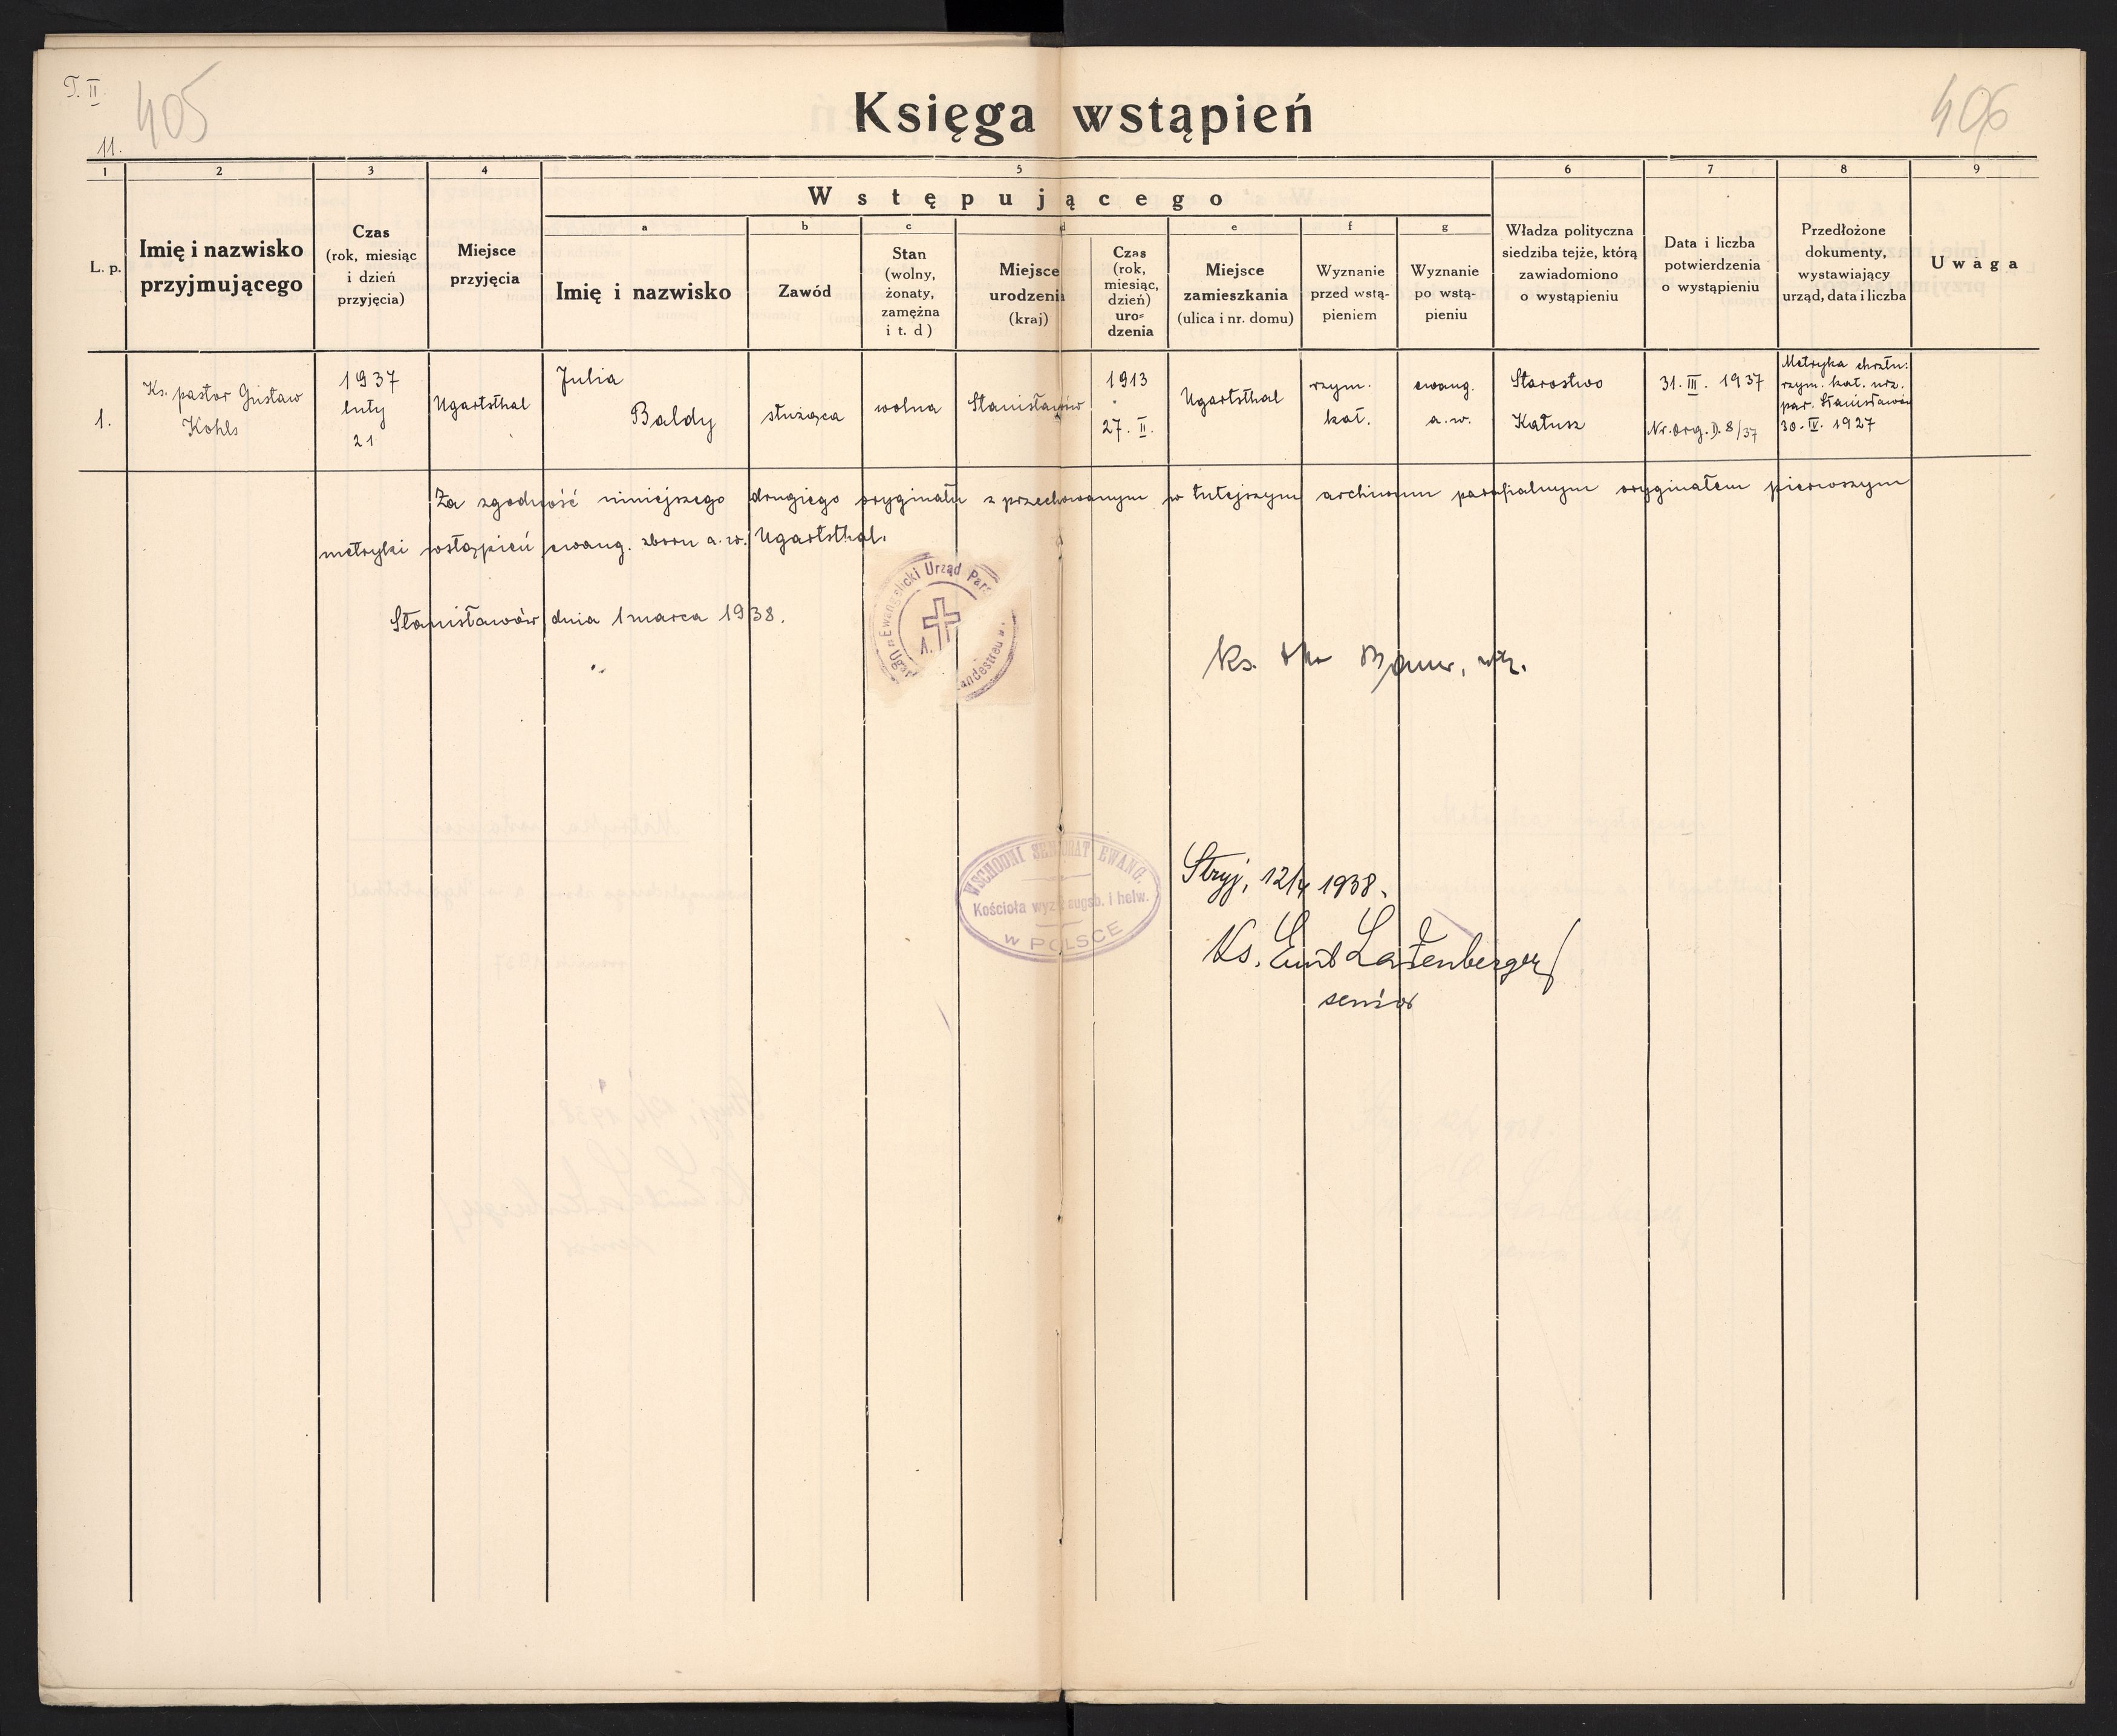 T. II.
405
406
11.
Księga wstąpień
1 2 3 4 5 6 7 8 9
Wstępującego
a b c d e f g
L. p.
Imię i nazwisko
przyjmującego
Czas
(rok, miesiąc
i dzień
przyjęcia)
Miejsce
przyjęcia
Imię i nazwisko
Zawód
Stan
(wolny,
żonaty,
zamężna
i t. d )
Miejsce
urodzenia
(kraj)
Czas
(rok,
miesiąc,
dzień)
uro-
dzenia
Miejsce
zamieszkania
(ulica i nr. domu)
Wyznanie
przed wstą-
pieniem
Wyznanie
po wstą-
pieniu
Władza polityczna
siedziba tejże, którą
zawiadomiono
o wystąpieniu
Data i liczba
potwierdzenia
o wystąpieniu
Przedłożone
dokumenty,
wystawiający
urząd, data i liczba
Uwaga
1.
Ks. pastor Gustaw
Kohls
1937
luty
21
Ugartsthal
Julia
Baldy
służąca
wolna
Stanisławów
1913
27. II.
Ugartsthal
rzym.
kat.
ewang.
a. w.
Starostwo
Kałusz
31. III. 1937
Nr. org. D. 8/37
Metryka chrztu:
rzym. kat. urz.
par. Stanisławów
30. IV. 1927
Za zgodność niniejszego drugiego oryginału z przechowanym w tutejszym archiwum parafialnym oryginałem pierwszym
metryki wstąpień ewang. zboru a. w. Ugartsthal.
Ewangelicki Urząd Para
Ugar
andestreu
Stanisławów dnia 1 marca 1938.
Ks.
WSCHODNI SENIORAT EWANG.
Kościoła wyz. augsb. i helw.
W POLSCE
Stryj, 12/4 1938.
Ks. Emil Ladenberger
senior